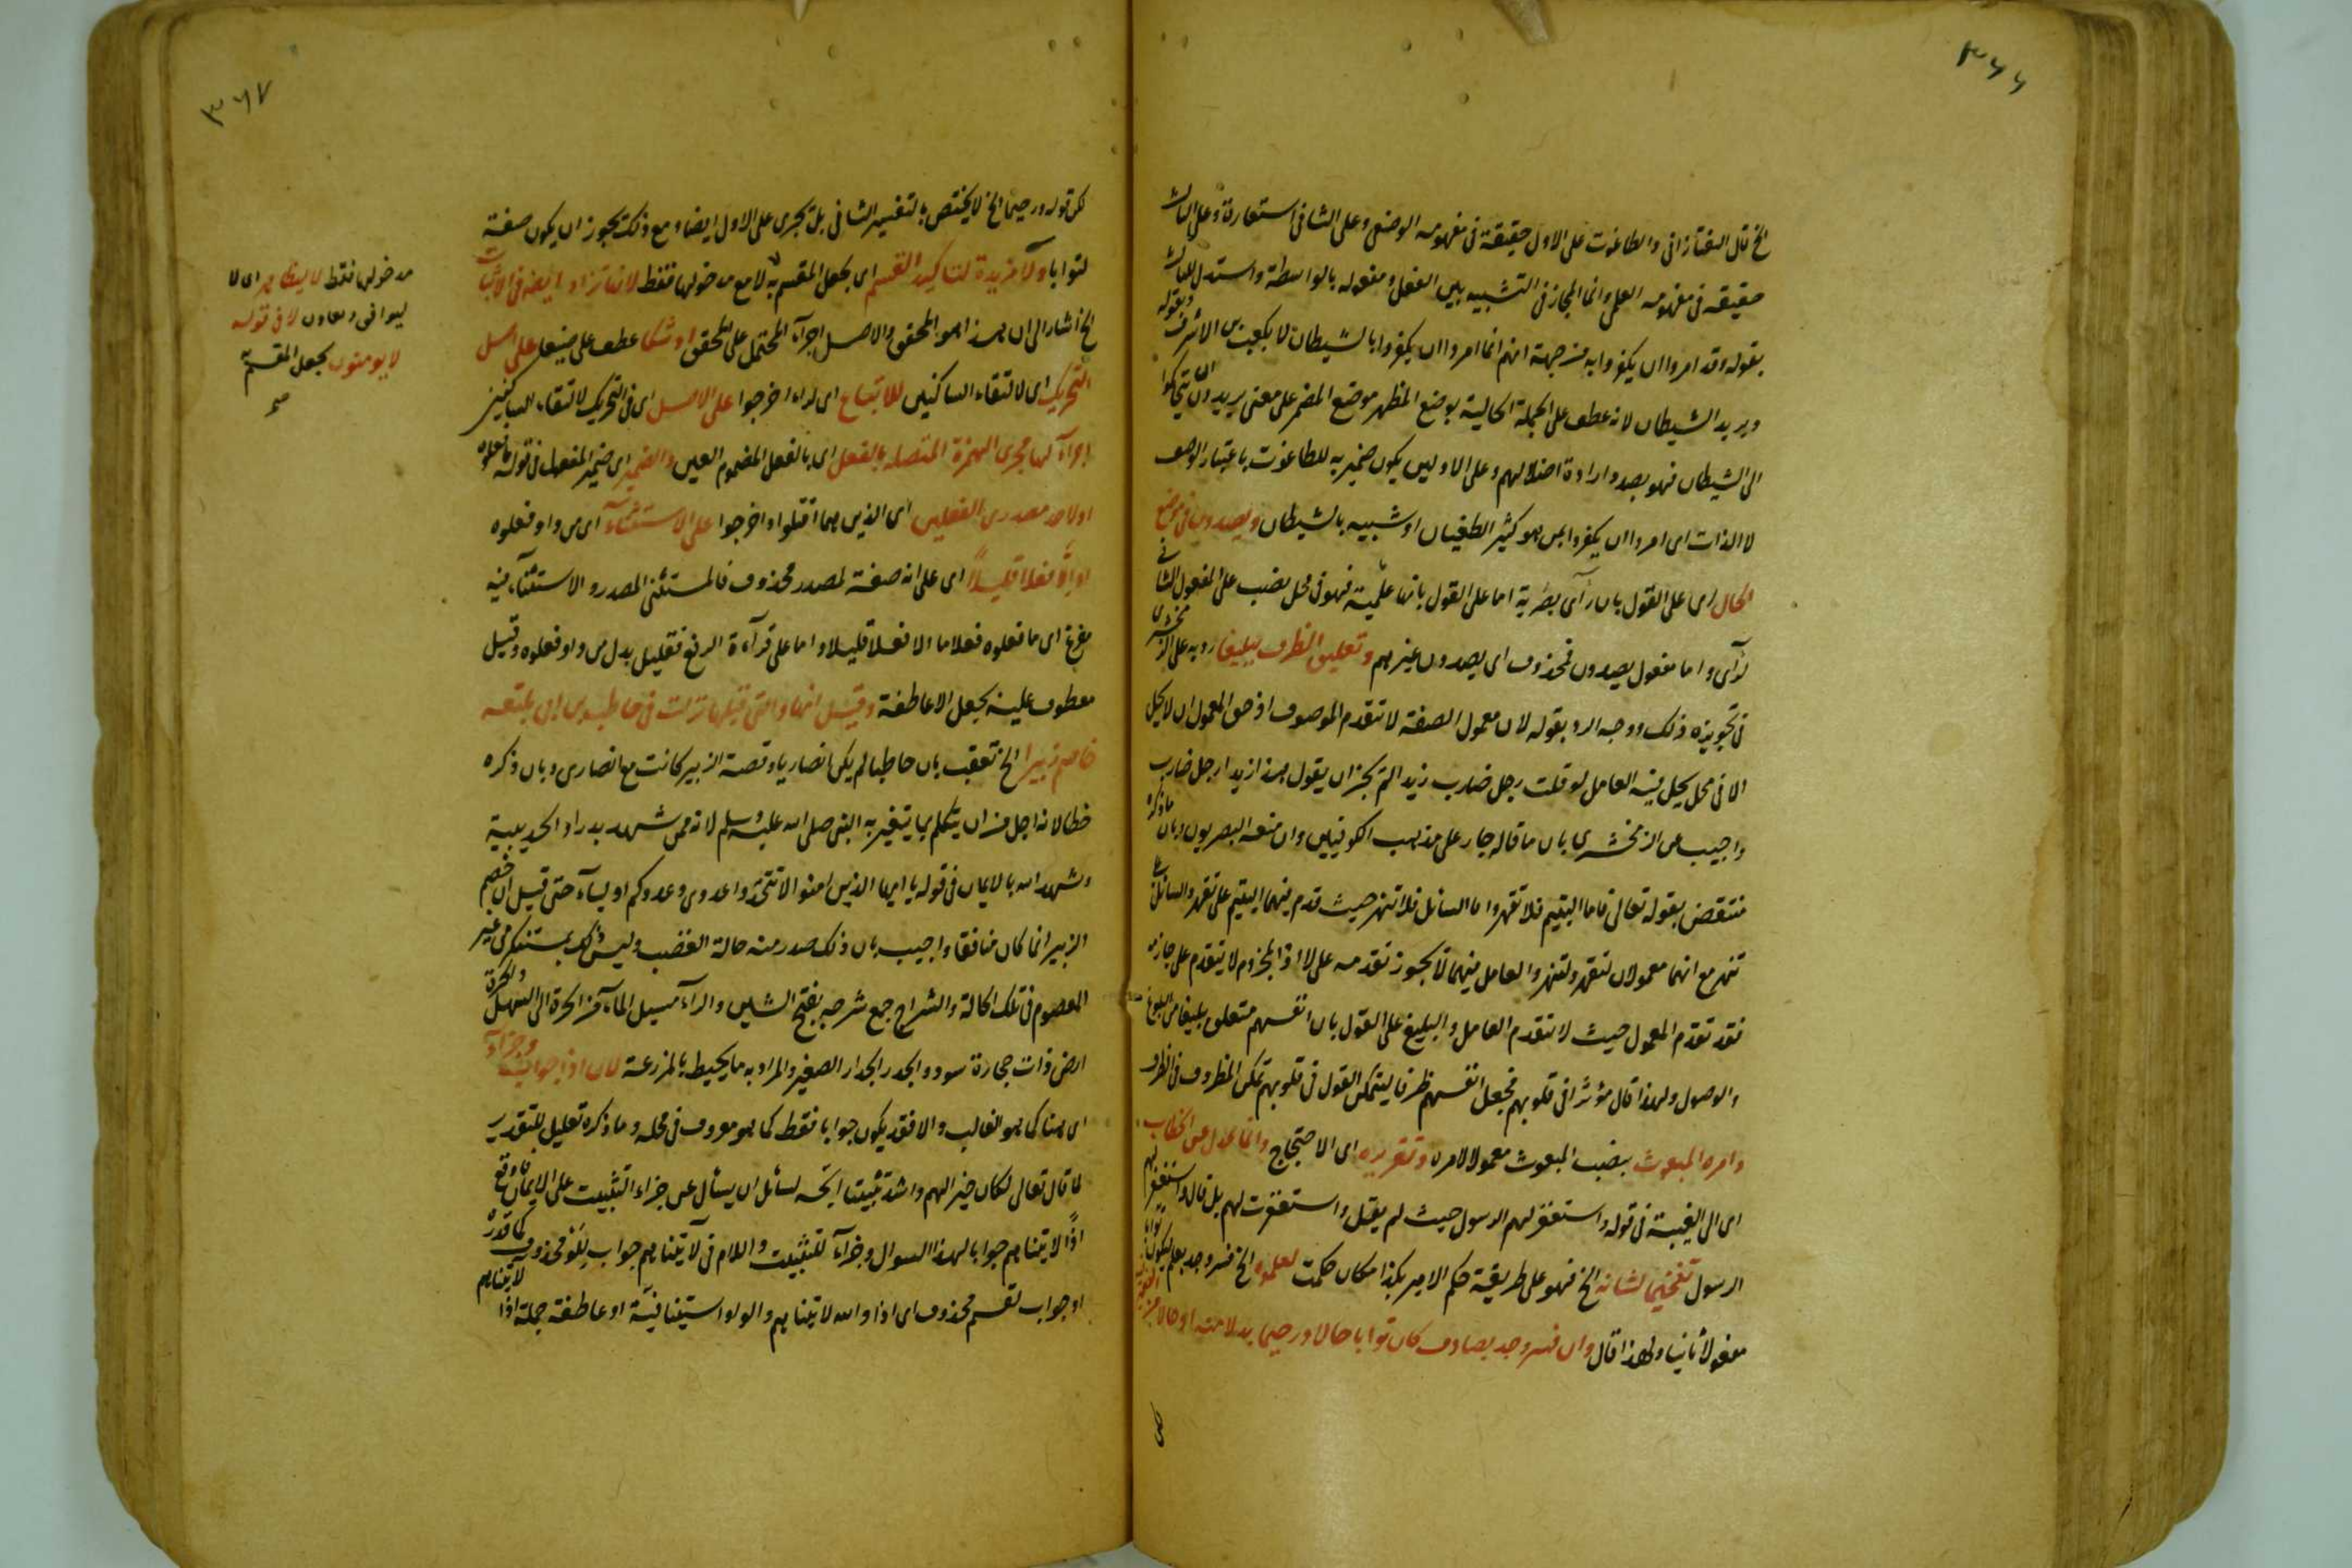 ٣٦٦
الخ قال التفتازانى والطاغوت على الاول حقيقة فى مفهومه الوصفى وعلى الثانى استعارة وعلى الثالث
حقيقة فى مفهومه العلمى وانما المجاز فى التشبيه بين الفعل ومفعوله بالواسطة واستدل للثالث
بقوله وقد امروا ان يكفروا به من جهة انهم انما امروا ان يكفروا بالشيطان لا بكعب بن الاشرف وبقوله
ويريد الشيطان لانه عطف على الجملة الحالية بوضع المظهر موضع المضمر على معنى يريدون ان يتحاكموا
الى الشيطان فهو بصدد ارادة اضلالهم وعلى الاولين يكون ضمير به للطاغوت باعتبار الوصف
لا الذات اى امروا ان يكفروا بمن هو كثير الطغيان او شبيه بالشيطان ويصدون فى موضع
الحال اى على القول بان رآى بصرية اما على القول بانها علمية فهو فى محل نصب على المفعول الثانى
لرآى واما مفعول يصدون فمحذوف اى يصدون غيرهم وتعليق الظرف ببليغا رد به على الزمخشرى
فى تجويزه ذلك ووجه الرد بقوله لان معمول الصفة لا تتقدم الموصوف اذ حق المعمول ان لا يحل
الا فى محل يحل فيه العامل لو قلت رجل ضارب زيدا لم تجز ان يقول هذا زيدا رجل ضارب
واجيب عن الزمخشرى بان ما قاله جار على مذهب الكوفيين وان منعه البصريون وبان ما ذكره
منتقض بقوله تعالى فاما اليتيم فلا تقهر واما السائل فلا تنهر حيث قدم فيهما اليتيم على تقهر والسائل على
تنهر مع انهما معمولان لتقهر ولتنهر والعامل فيهما لا يجوز تقدمه على لا اذ المجزوم لا يتقدم على جازمه
فقد تقدم المعمول حيث لا تتقدم العامل والبليغ على القول بان انفسهم متعلق ببليغا من البلوغ
والوصول ولهذا قال مؤثرا فى قلوبهم فجعل انفسهم ظرفا ليتمكن القول فى قلوبهم تمكن المظروف فى الظرف
وامره المبعوث بنصب المبعوث معمولا لامره وتقريره اى الاحتجاج وانما عدل عن الخطاب
اى الى الغيبة فى قوله واستغفر لهم الرسول حيث لم يقل واستغفرت لهم بل قال واستغفر لهم
الرسول تفخيما لشانه الخ فهو على طريقة حكم الامير بكذا مكان حكمت لعلموه الخ فسر وجد بعلم ليكون توابا
مفعولا ثانيا ولهذا قال وان فسر وجد بصادف كان توابا حالا ورحيما بدلا منه او حالا من
٣٦٧
لكن قوله ورحيما الخ لا يختص بالتفسير الثانى بل تجرى على الاول ايضا ومع ذلك يجوز ان يكون صفة
لتوابا ولا مزيدة لتاكيد القسم اى بجعل المقسم به لا مع مدخولها فقط لانها تزاد ايضه فى الاثبات
الخ اشار الى ان هذا هو المحقق والاصل اجراء المحتمل على المحقق او شكا عطف على ضيقا على اصل
التحريك اى لالتقاء الساكنين للاتباع اى لراء اخرجوا على الاصل اى فى التحريك لالتقاء الساكنين
اجراء لهما مجرى الهمزة المتصلة بالفعل اى بالفعل المضموم العين والضمير اى ضمير المفعول فى قوله ما فعلوه
اولاحد مصدرى الفعلين اى الذين هما اقتلوا او اخرجوا على الاستثناء اى من واو فعلوه
او الا فعلا قليلا اى على انه صفة لمصدر محذوف فالمستثنى المصدر والاستثناء فيه
مفرغ اى ما فعلوه فعلا ما الا فعلا قليلا واما على قرآءة الرفع فقليل بدل من واو فعلوه وقيل
معطوف عليه بجعل الا عاطفة وقيل انها والتى قبلها نزلت فى حاطب بن ابى بلتعه
خاصم زبيرا الخ تعقب بان حاطبا لم يكن انصاريا وقصة الزبير كانت مع انصارى وبان ذكره
خطا لانه اجل من ان يتكلم بما يتغير به النبى صلى الله عليه وسلم لانه ممن شهد بدرا والحديبية
وشهد الله بالايمان فى قوله يا ايها الذين امنوا لا تتخذوا عدوى وعدوكم اوليآء حتى قيل ان خصم
الزبير انما كان منافقا واجيب بان ذلك صدر منه حالة الغضب وليس ذلك بمستنكر من غير
المعصوم فى تلك الحالة والشراج جمع شرجه بفتح الشين والرآء مسيل المآء من الحرة الى السهل والحرة
ارض ذات حجارة سود والجدر الجدار الصغير والمراد به ما يحيط بالمزرعة لان اذا جواب وجزاء
اى هنا كما هو الغالب والا فقد يكون جوابا فقط كما هو معروف فى محله وما ذكره تعليل للتقدير
لما قال تعالى لكان خيرا لهم واشد تثبيتا اتجه لسائل ان يسأل عن جزاء التثبيت على الايمان فاوقع
اذًا لاتيناهم جوابا لهذا السوال وجزآء للتثبيت واللام فى لآتيناهم جواب للو محذوف كما قدره
او جواب لقسم محذوف اى اذا والله لاتيناهم والواو استينافية او عاطفة جملة اذًا لاتيناهم
مدخولها فقط لا ليظاهر اى لا
ليوافق ويعاون لا فى قوله
لا يومنون بجعل المقسم به
صح